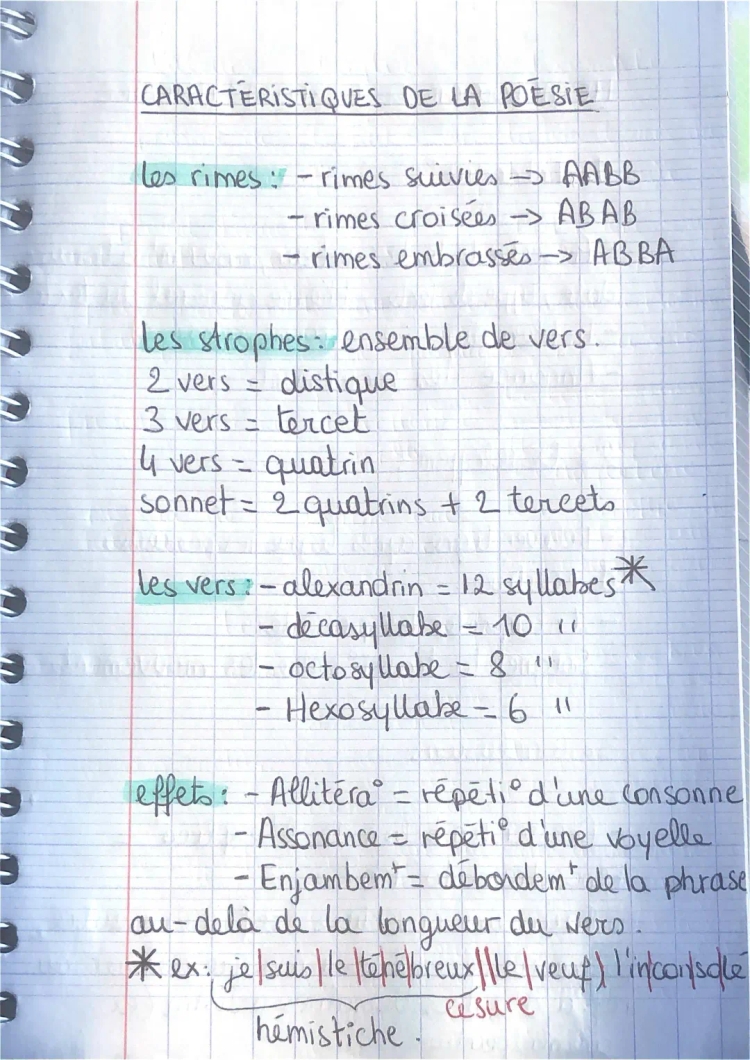 CARACTÉRISTIQUES DE LA POÉSIE
les rimes : - rimes suivies -> AABB
- rimes croisées -> ABAB
- rimes embrassés -> ABBA
les strophes : ensemble de vers.
2 vers = distique
3 vers = tercet
4 vers = quatrin
sonnet = 2 quatrins + 2 tercets
les vers : - alexandrin = 12 syllabes*
- décasyllabe = 10 "
- octosyllabe = 8 "
- Hexosyllabe = 6 "
effets : - Allitéra° = répéti° d'une consonne
- Assonance = répéti° d'une voyelle
- Enjambemt = débordemt de la phrase
au-delà de la longueur du vers.
* ex: je|suis|le|téné|breux||le|veuf,|l'in|con|so|lé
césure
hémistiche.